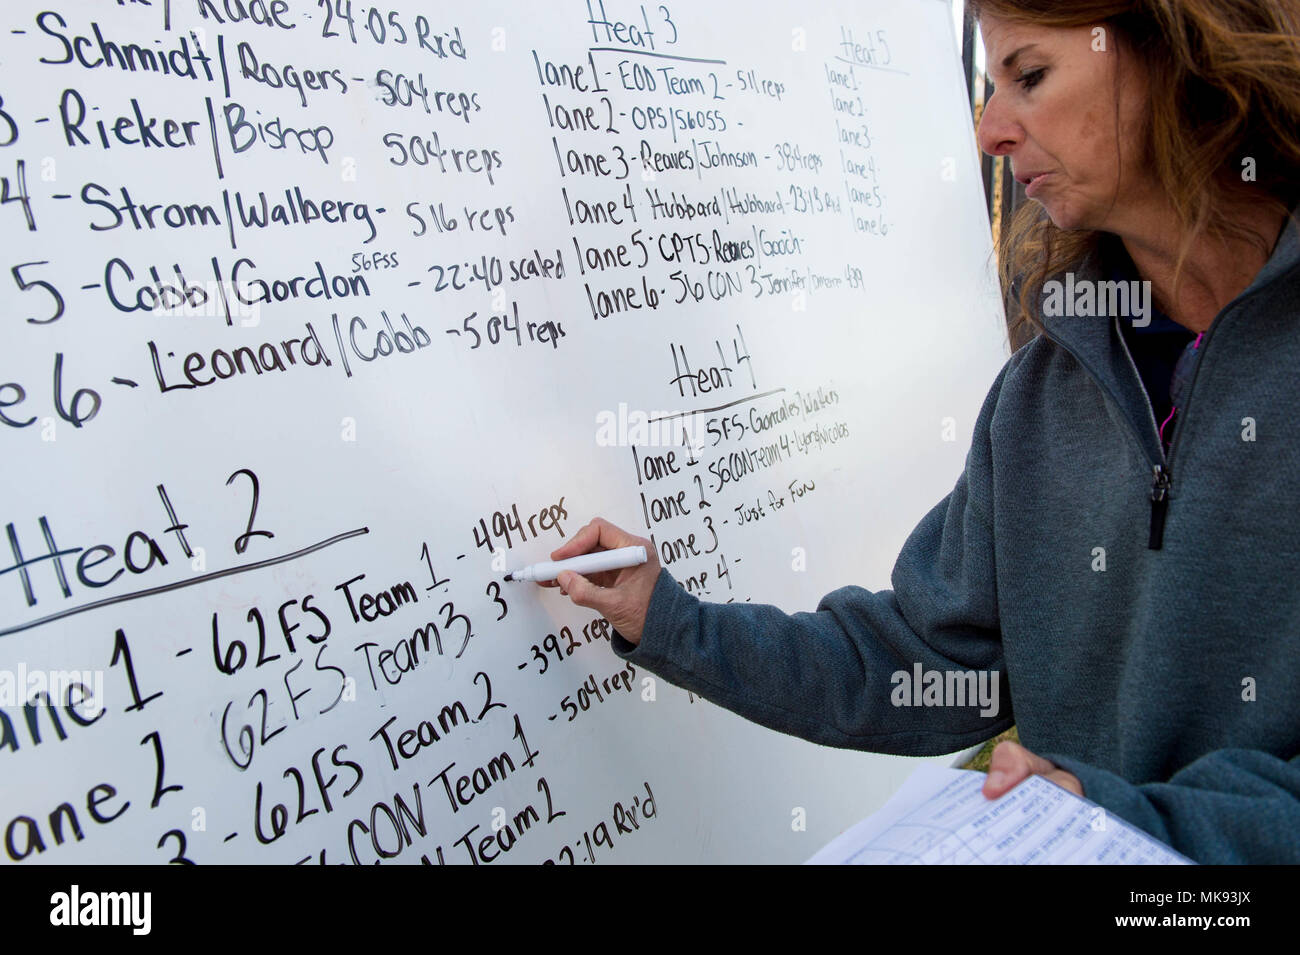 24:05 Rx'd
- Schmidt/Rogers - 504 reps
3 - Rieker/Bishop 504 reps
4 - Strom/Walberg - 516 reps
5 - Cobb/Gordon 56FSS - 22:40 scaled
e 6 - Leonard/Cobb - 504 reps
Heat 2
ane 1 - 62FS Team 1 - 494 reps
ane 2 62FS Team 3 3
3 - 62FS Team 2 - 392 reps
CON Team 1 - 504 reps
Team 2
19 Rx'd
Heat 3
lane 1 - EOD Team 2 - 511 reps
lane 2 - OPS/56OSS -
lane 3 - Reaves/Johnson - 384 reps
lane 4 Hubbard/Hubbard - 23:13 Rxd
lane 5 - CPTS - Reaves/Gooch -
lane 6 - 56 CON 3 Jennifer/ 439
Heat 4
lane 1 - SFS - Gonzales/Walters
lane 2 - 56CON Team 4 - Lyons/Nicolas
lane 3 - Just for Fun
ane 4 -
Heat 5
lane 1 -
lane 2 -
lane 3 -
lane 4 -
lane 5 -
lane 6 -
alamy
a
alamy
Image ID: MK93JX
www.alamy.com